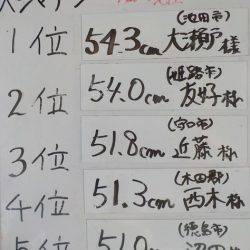 (池田市)
1位 54.3cm 大瀬戸様
(姫路市)
2位 54.0cm 友好様
(守口市)
3位 51.8cm 近藤様
(木田郡)
4位 51.3cm 西木様
(徳島市)
5位 51.0cm 沼田